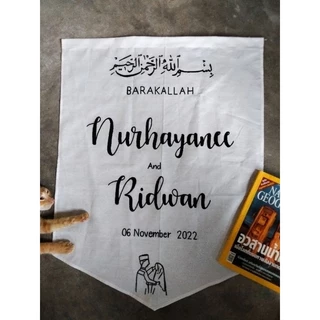 بِسْمِ اللهِ الرَّحْمٰنِ الرَّحِيْمِ
BARAKALLAH
Nurhayanee
And
Ridwan
06 November 2022